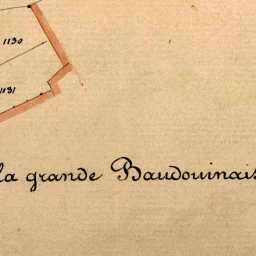 1130
1131
la grande Baudouinais